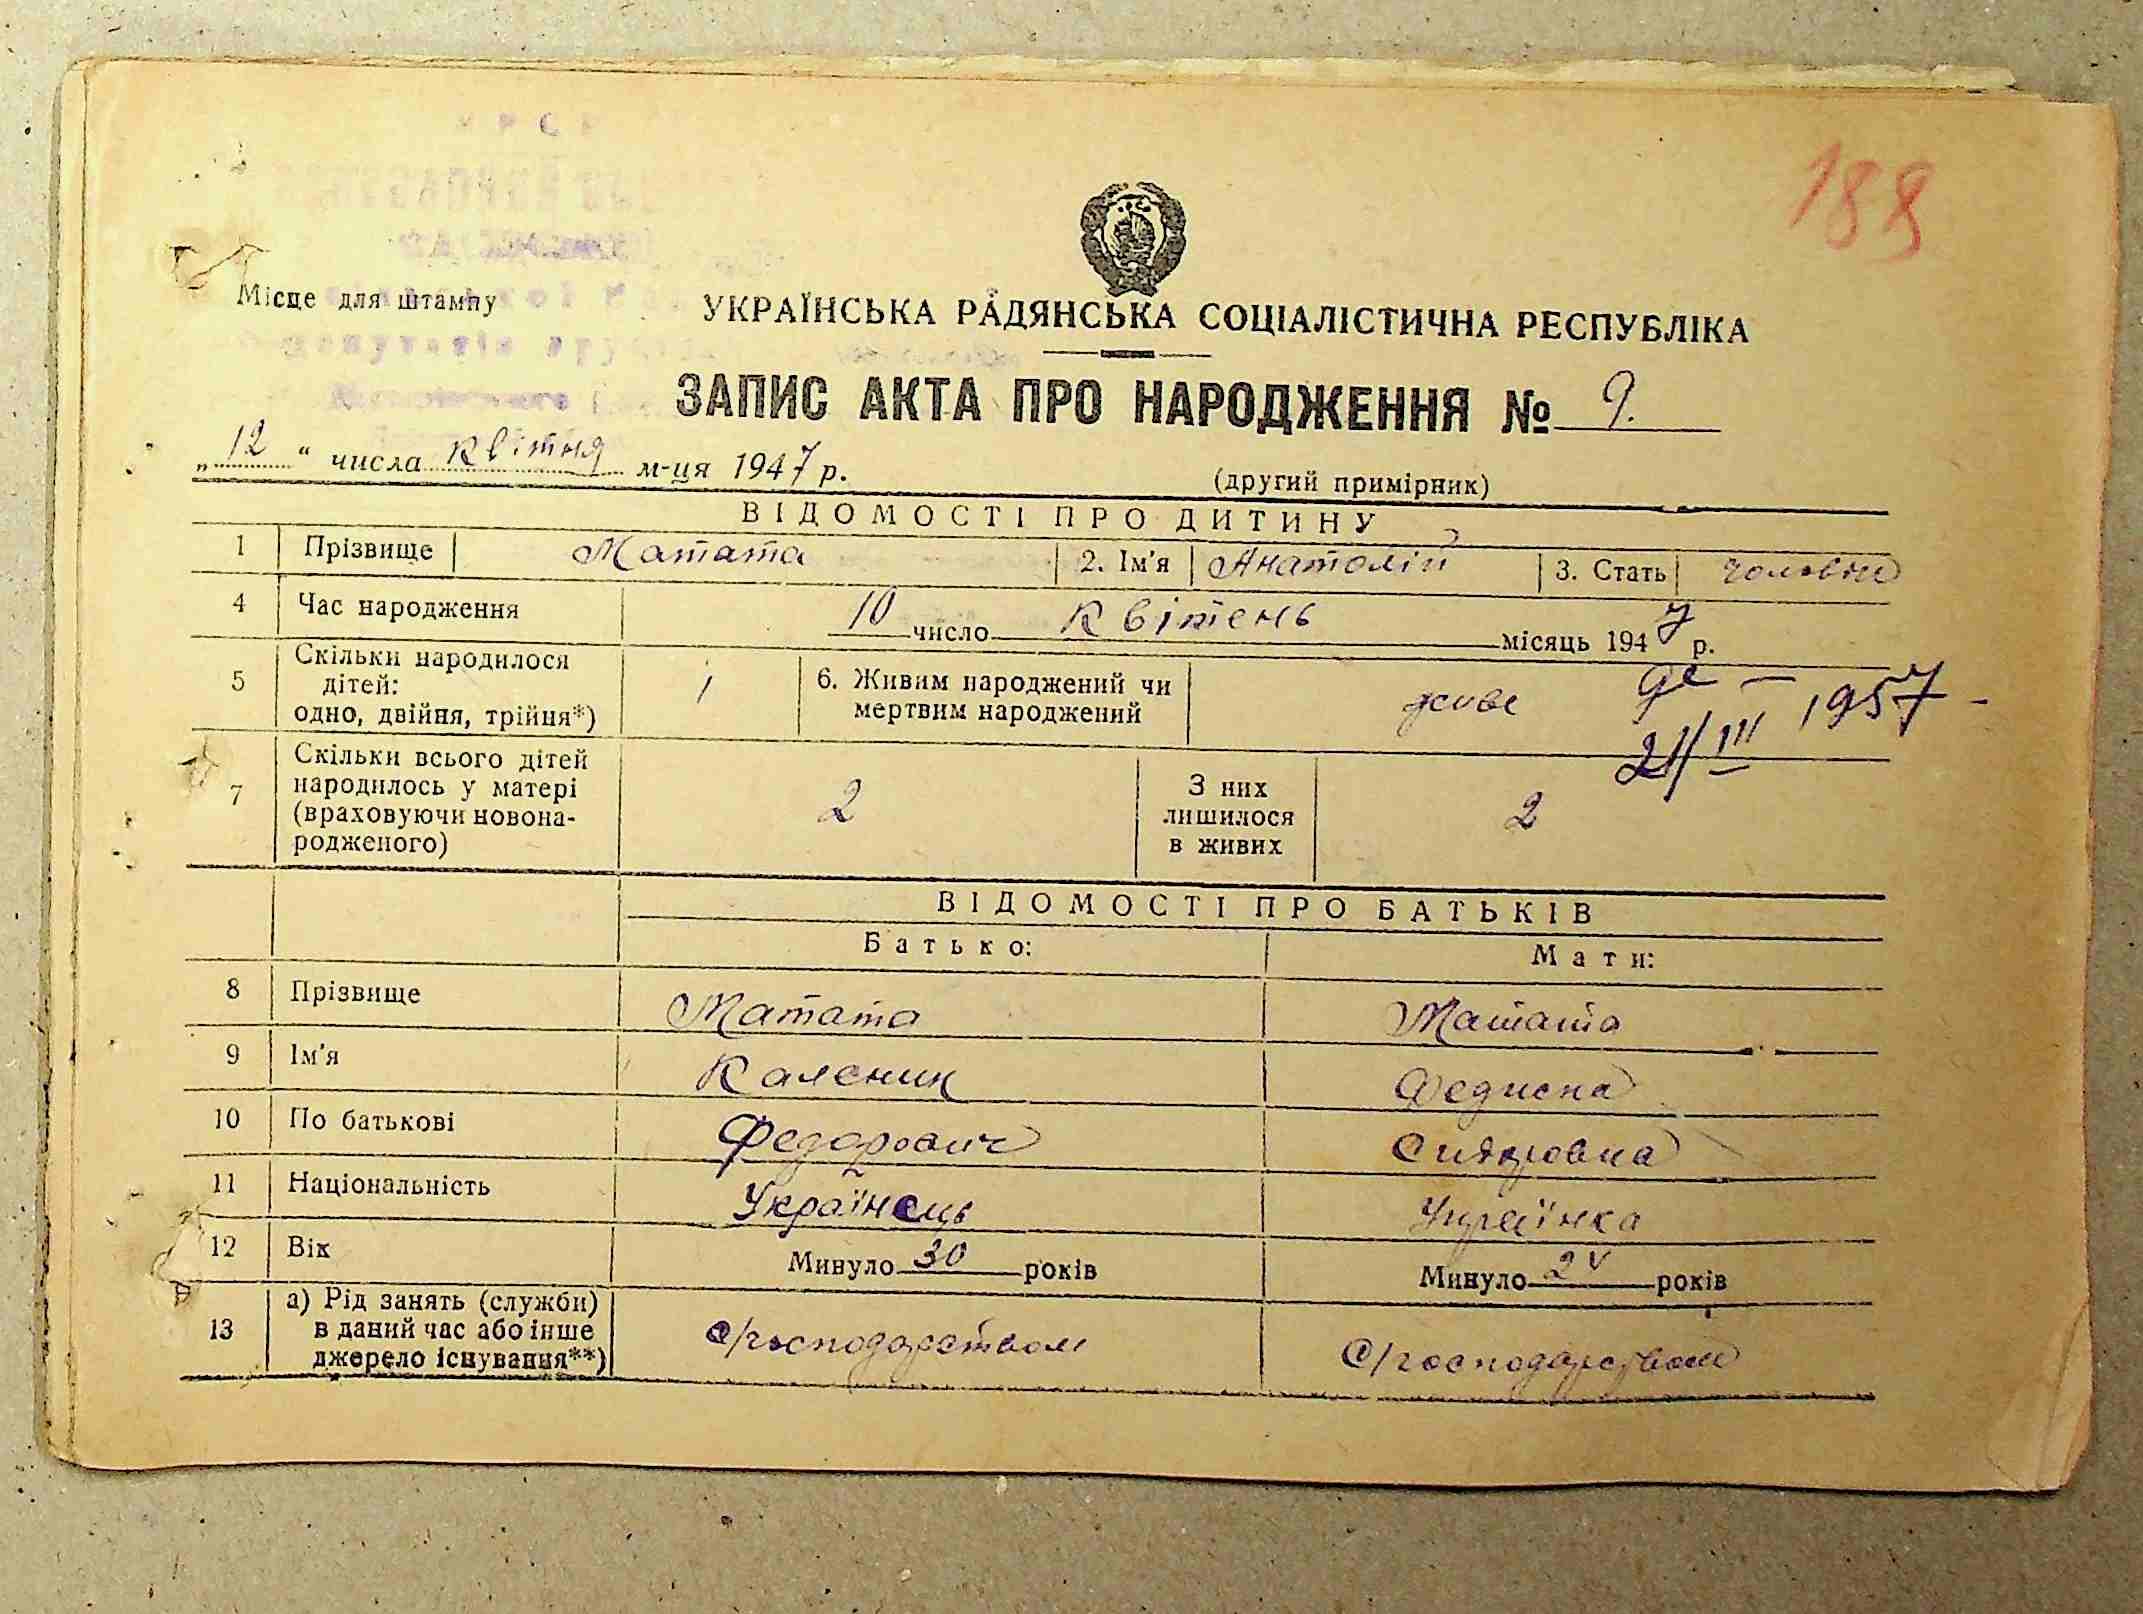 188
Місце для штампу
УКРАЇНСЬКА РАДЯНСЬКА СОЦІАЛІСТИЧНА РЕСПУБЛІКА
ЗАПИС АКТА ПРО НАРОДЖЕННЯ № 9.
„12“ числа квітня м-ця 1947 р.
(другий примірник)
ВІДОМОСТІ ПРО ДИТИНУ
1 Прізвище Матата 2. Ім'я Анатолій 3. Стать
4 Час народження 10 число квітень місяць 1947 р.
5 Скільки народилося дітей: одно, двійня, трійня*) 1 6. Живим народжений чи мертвим народжений живе
21/III 1957
7 Скільки всього дітей народилось у матері (враховуючи новонародженого) 2 З них лишилося в живих 2
ВІДОМОСТІ ПРО БАТЬКІВ
Батько: Мати:
8 Прізвище Матата Матата
9 Ім'я Каленик
10 По батькові Федорович Сидоровна
11 Національність Українець Українка
12 Вік Минуло 30 років Минуло років
13 а) Рід занять (служби) в даний час або інше джерело існування**) с/господарством с/господарством